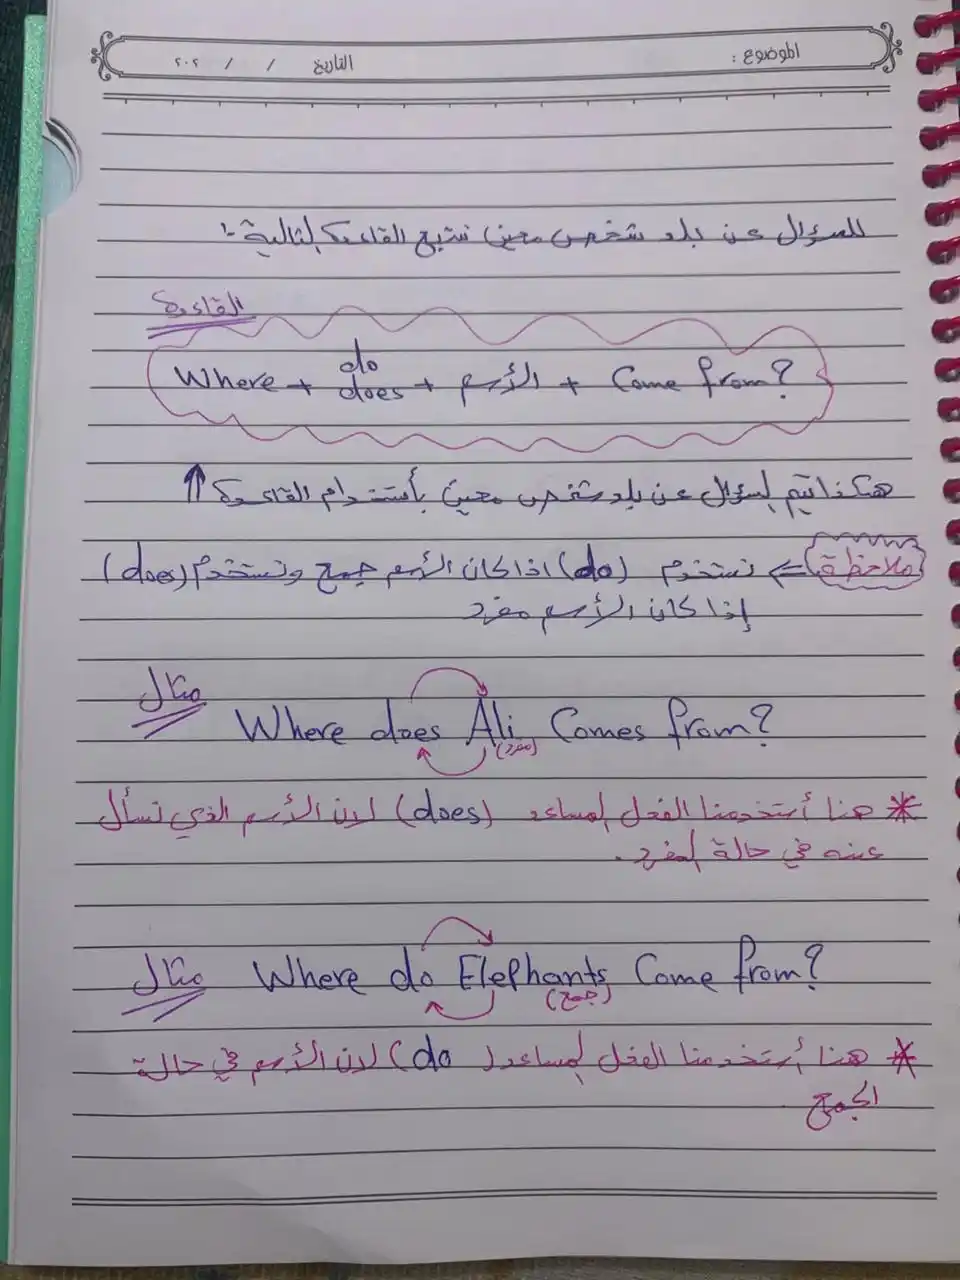 الموضوع : التاريخ / / ٢٠٢
للسؤال عن بلد شخص معين نتبع القاعدة التالية :-
القاعدة
Where + do does + الأسم + Come from?
هكذا يتم السؤال عن بلد شخص معين بأستخدام القاعدة ↑
ملاحظة ⇐ نستخدم (do) اذا كان الأسم جمع ونستخدم (does)
إذا كان الأسم مفرد
مثال Where does Ali Comes from?
(مفرد)
* هنا أستخدمنا الفعل المساعد (does) لان الأسم الذي نسأل
عنه في حالة المفرد .
مثال Where do Elephants Come from?
(جمع)
* هنا أستخدمنا الفعل المساعد (do) لان الأسم في حالة
الجمع